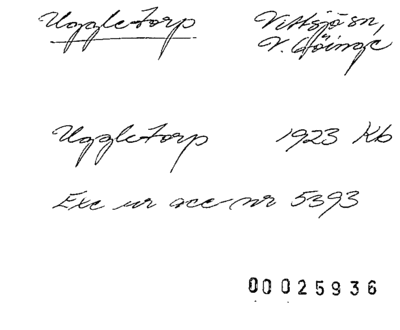 Uggletorp
Vittsjö sn,
V. Göinge
Uggletorp 1923 Kb
Exc ur acc-nr 5393
00025936